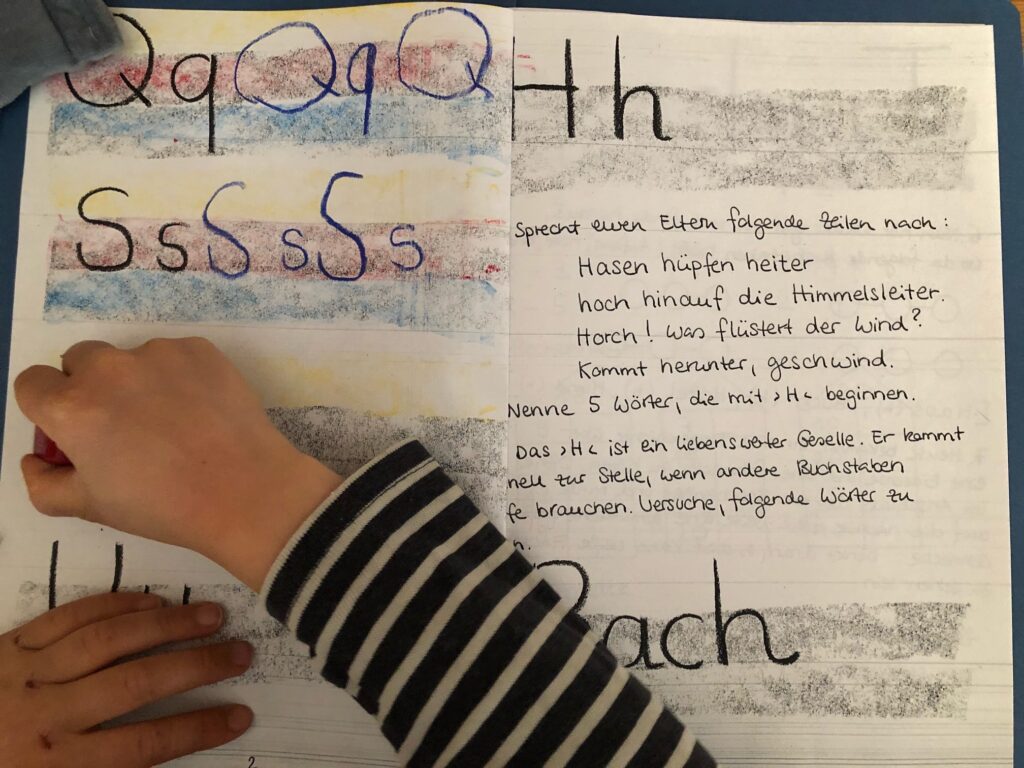 Q q Q q Q
S s S s S s
H h
Sprecht euren Eltern folgende Zeilen nach:
Hasen hüpfen heiter
hoch hinauf die Himmelsleiter.
Horch! Was flüstert der Wind?
Kommt herunter, geschwind.
Nenne 5 Wörter, die mit >H< beginnen.
Das >H< ist ein liebenswerter Geselle. Er kommt
nell zur Stelle, wenn andere Buchstaben
fe brauchen. Versuche, folgende Wörter zu
n.
ach
2